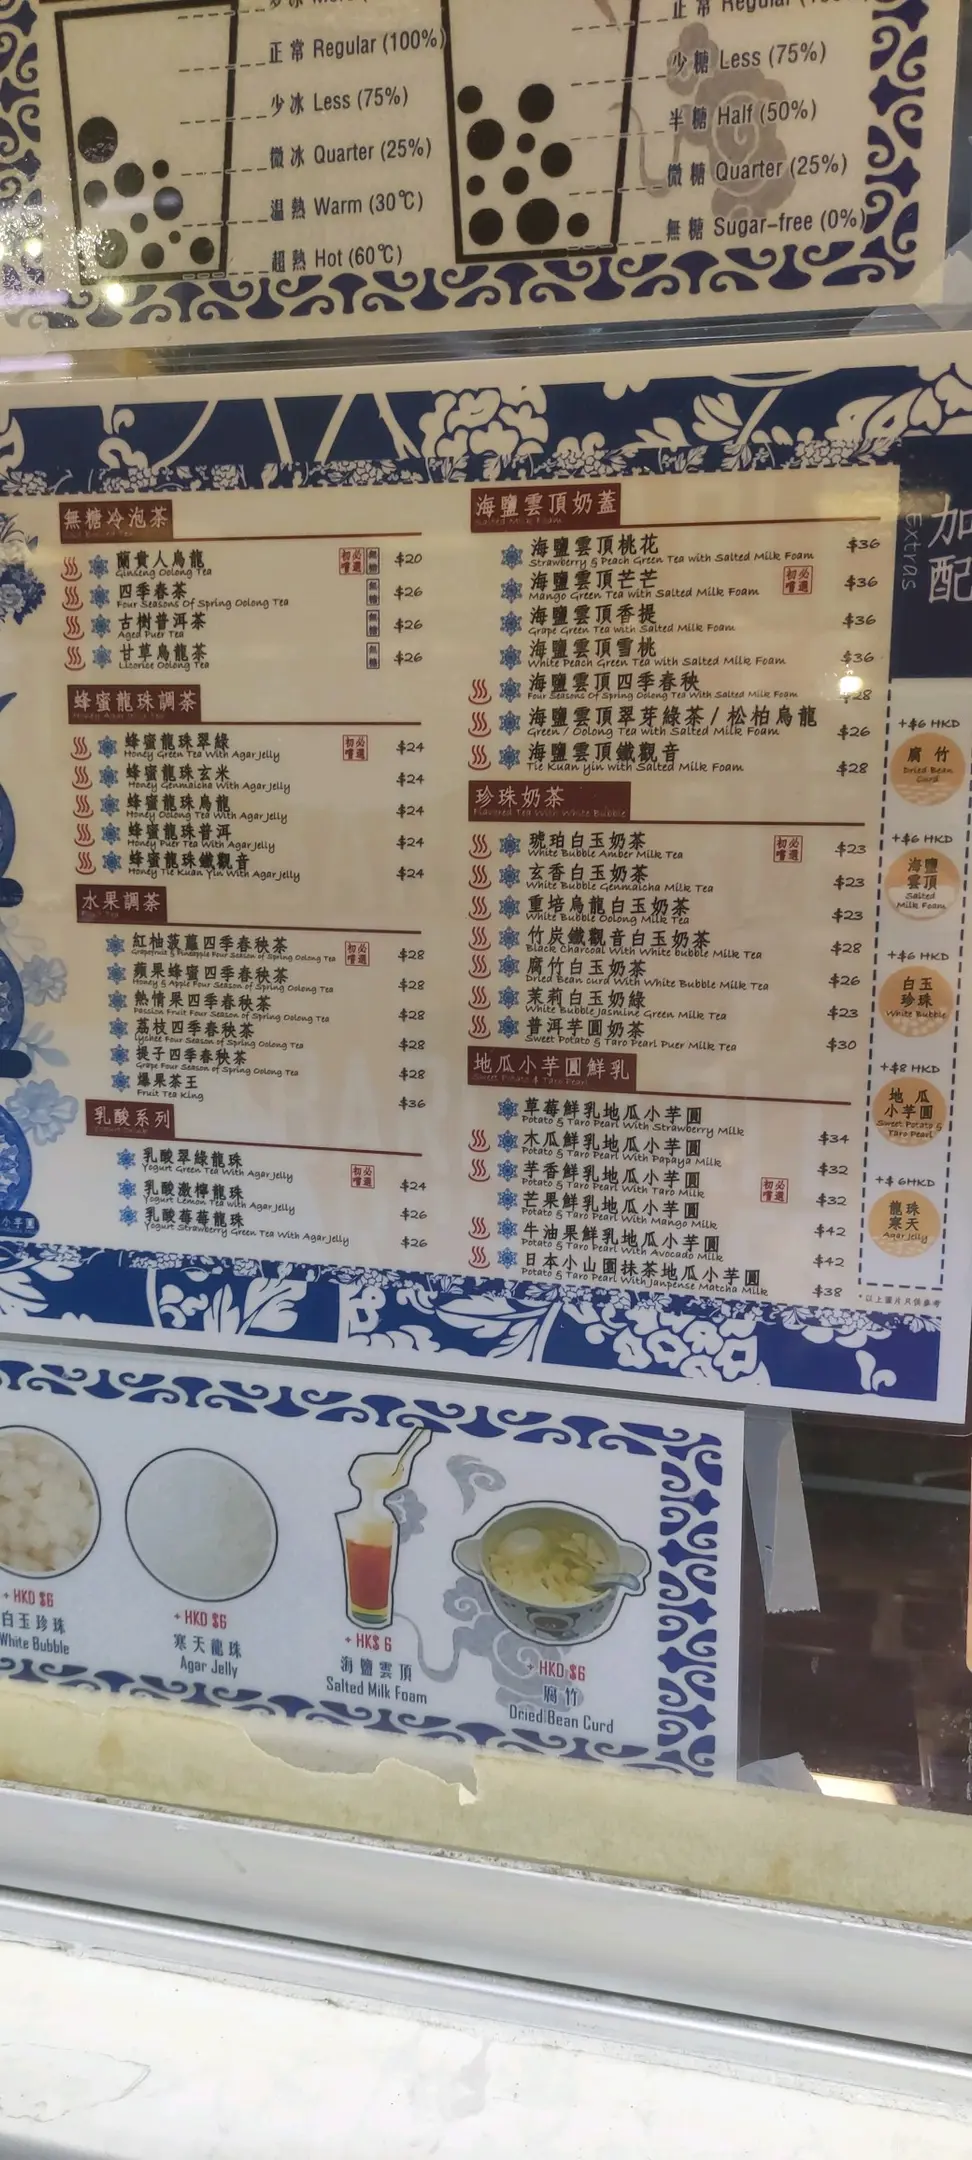 正常 Regular (100%)
少冰 Less (75%)
微冰 Quarter (25%)
溫熱 Warm (30℃)
超熱 Hot (60℃)
正常 Regular
少糖 Less (75%)
半糖 Half (50%)
微糖 Quarter (25%)
無糖 Sugar-free (0%)
無糖冷泡茶
蘭貴人烏龍 初必嚐選 無糖 $20
Ginseng Oolong Tea
四季春茶 無糖 $26
Four Seasons Of Spring Oolong Tea
古樹普洱茶 無糖 $26
Aged Puer Tea
甘草烏龍茶 無糖 $26
Licorice Oolong Tea
蜂蜜龍珠調茶
Honey Agar Jelly Tea
蜂蜜龍珠翠綠 初必嚐選 $24
Honey Green Tea With Agar Jelly
蜂蜜龍珠玄米 $24
Honey Genmaicha With Agar Jelly
蜂蜜龍珠烏龍 $24
Honey Oolong Tea With Agar Jelly
蜂蜜龍珠普洱 $24
Honey Puer Tea With Agar Jelly
蜂蜜龍珠鐵觀音 $24
Honey Tie Kuan Yin With Agar Jelly
水果調茶
Fruit Tea
紅柚菠蘿四季春秧茶 初必嚐選 $28
Grapefruit & Pineapple Four Season of Spring Oolong Tea
蘋果蜂蜜四季春秧茶 $28
Honey & Apple Four Season of Spring Oolong Tea
熱情果四季春秧茶 $28
Passion Fruit Four Season of Spring Oolong Tea
荔枝四季春秧茶 $28
Lychee Four Season of Spring Oolong Tea
提子四季春秧茶 $28
Grape Four Season of Spring Oolong Tea
爆果茶王 $36
Fruit Tea King
乳酸系列
乳酸翠綠龍珠 初必嚐選 $24
Yogurt Green Tea With Agar Jelly
乳酸激檸龍珠 $26
Yogurt Lemon Tea with Agar Jelly
乳酸莓莓龍珠 $26
Yogurt Strawberry Green Tea With Agar Jelly
海鹽雲頂奶蓋
Salted Milk Foam
海鹽雲頂桃花 $36
Strawberry & Peach Green Tea with Salted Milk Foam
海鹽雲頂芒芒 初必嚐選 $36
Mango Green Tea with Salted Milk Foam
海鹽雲頂香提 $36
Grape Green Tea with Salted Milk Foam
海鹽雲頂雪桃 $36
White Peach Green Tea with Salted Milk Foam
海鹽雲頂四季春秧 $28
Four Seasons Of Spring Oolong Tea with Salted Milk Foam
海鹽雲頂翠芽綠茶 / 松柏烏龍 $26
Green / Oolong Tea with Salted Milk Foam
海鹽雲頂鐵觀音 $28
Tie Kuan Yin with Salted Milk Foam
珍珠奶茶
Flavored Tea With White Bubble
琥珀白玉奶茶 初必嚐選 $23
White Bubble Amber Milk Tea
玄香白玉奶茶 $23
White Bubble Genmaicha Milk Tea
重培烏龍白玉奶茶 $23
White Bubble Oolong Milk Tea
竹炭鐵觀音白玉奶茶 $28
Black Charcoal With White bubble Milk Tea
腐竹白玉奶茶 $26
Dried Bean curd With White Bubble Milk Tea
茉莉白玉奶綠 $23
White Bubble Jasmine Green Milk Tea
普洱芋圓奶茶 $30
Sweet Potato & Taro Pearl Puer Milk Tea
地瓜小芋圓鮮乳
Sweet Potato & Taro Pearl
草莓鮮乳地瓜小芋圓 $34
Potato & Taro Pearl With Strawberry Milk
木瓜鮮乳地瓜小芋圓 $32
Potato & Taro Pearl With Papaya Milk
芋香鮮乳地瓜小芋圓 初必嚐選 $32
Potato & Taro Pearl With Taro Milk
芒果鮮乳地瓜小芋圓 $42
Potato & Taro Pearl With Mango Milk
牛油果鮮乳地瓜小芋圓 $42
Potato & Taro Pearl With Avocado Milk
日本小山園抹茶地瓜小芋圓 $38
Potato & Taro Pearl With Janpense Matcha Milk
加配
Extras
+$6 HKD
腐竹
Dried Bean
Curd
+$6 HKD
海鹽
雲頂
Salted
Milk Foam
+$6 HKD
白玉
珍珠
White Bubble
+$8 HKD
地瓜
小芋圓
Sweet Potato &
Taro Pearl
+$6HKD
龍珠
寒天
Agar Jelly
*以上圖片只供參考
小芋圓
+ HKD $6
白玉珍珠
White Bubble
+ HKD $6
寒天龍珠
Agar Jelly
+ HK$ 6
海鹽雲頂
Salted Milk Foam
+ HKD $6
腐竹
Dried Bean Curd